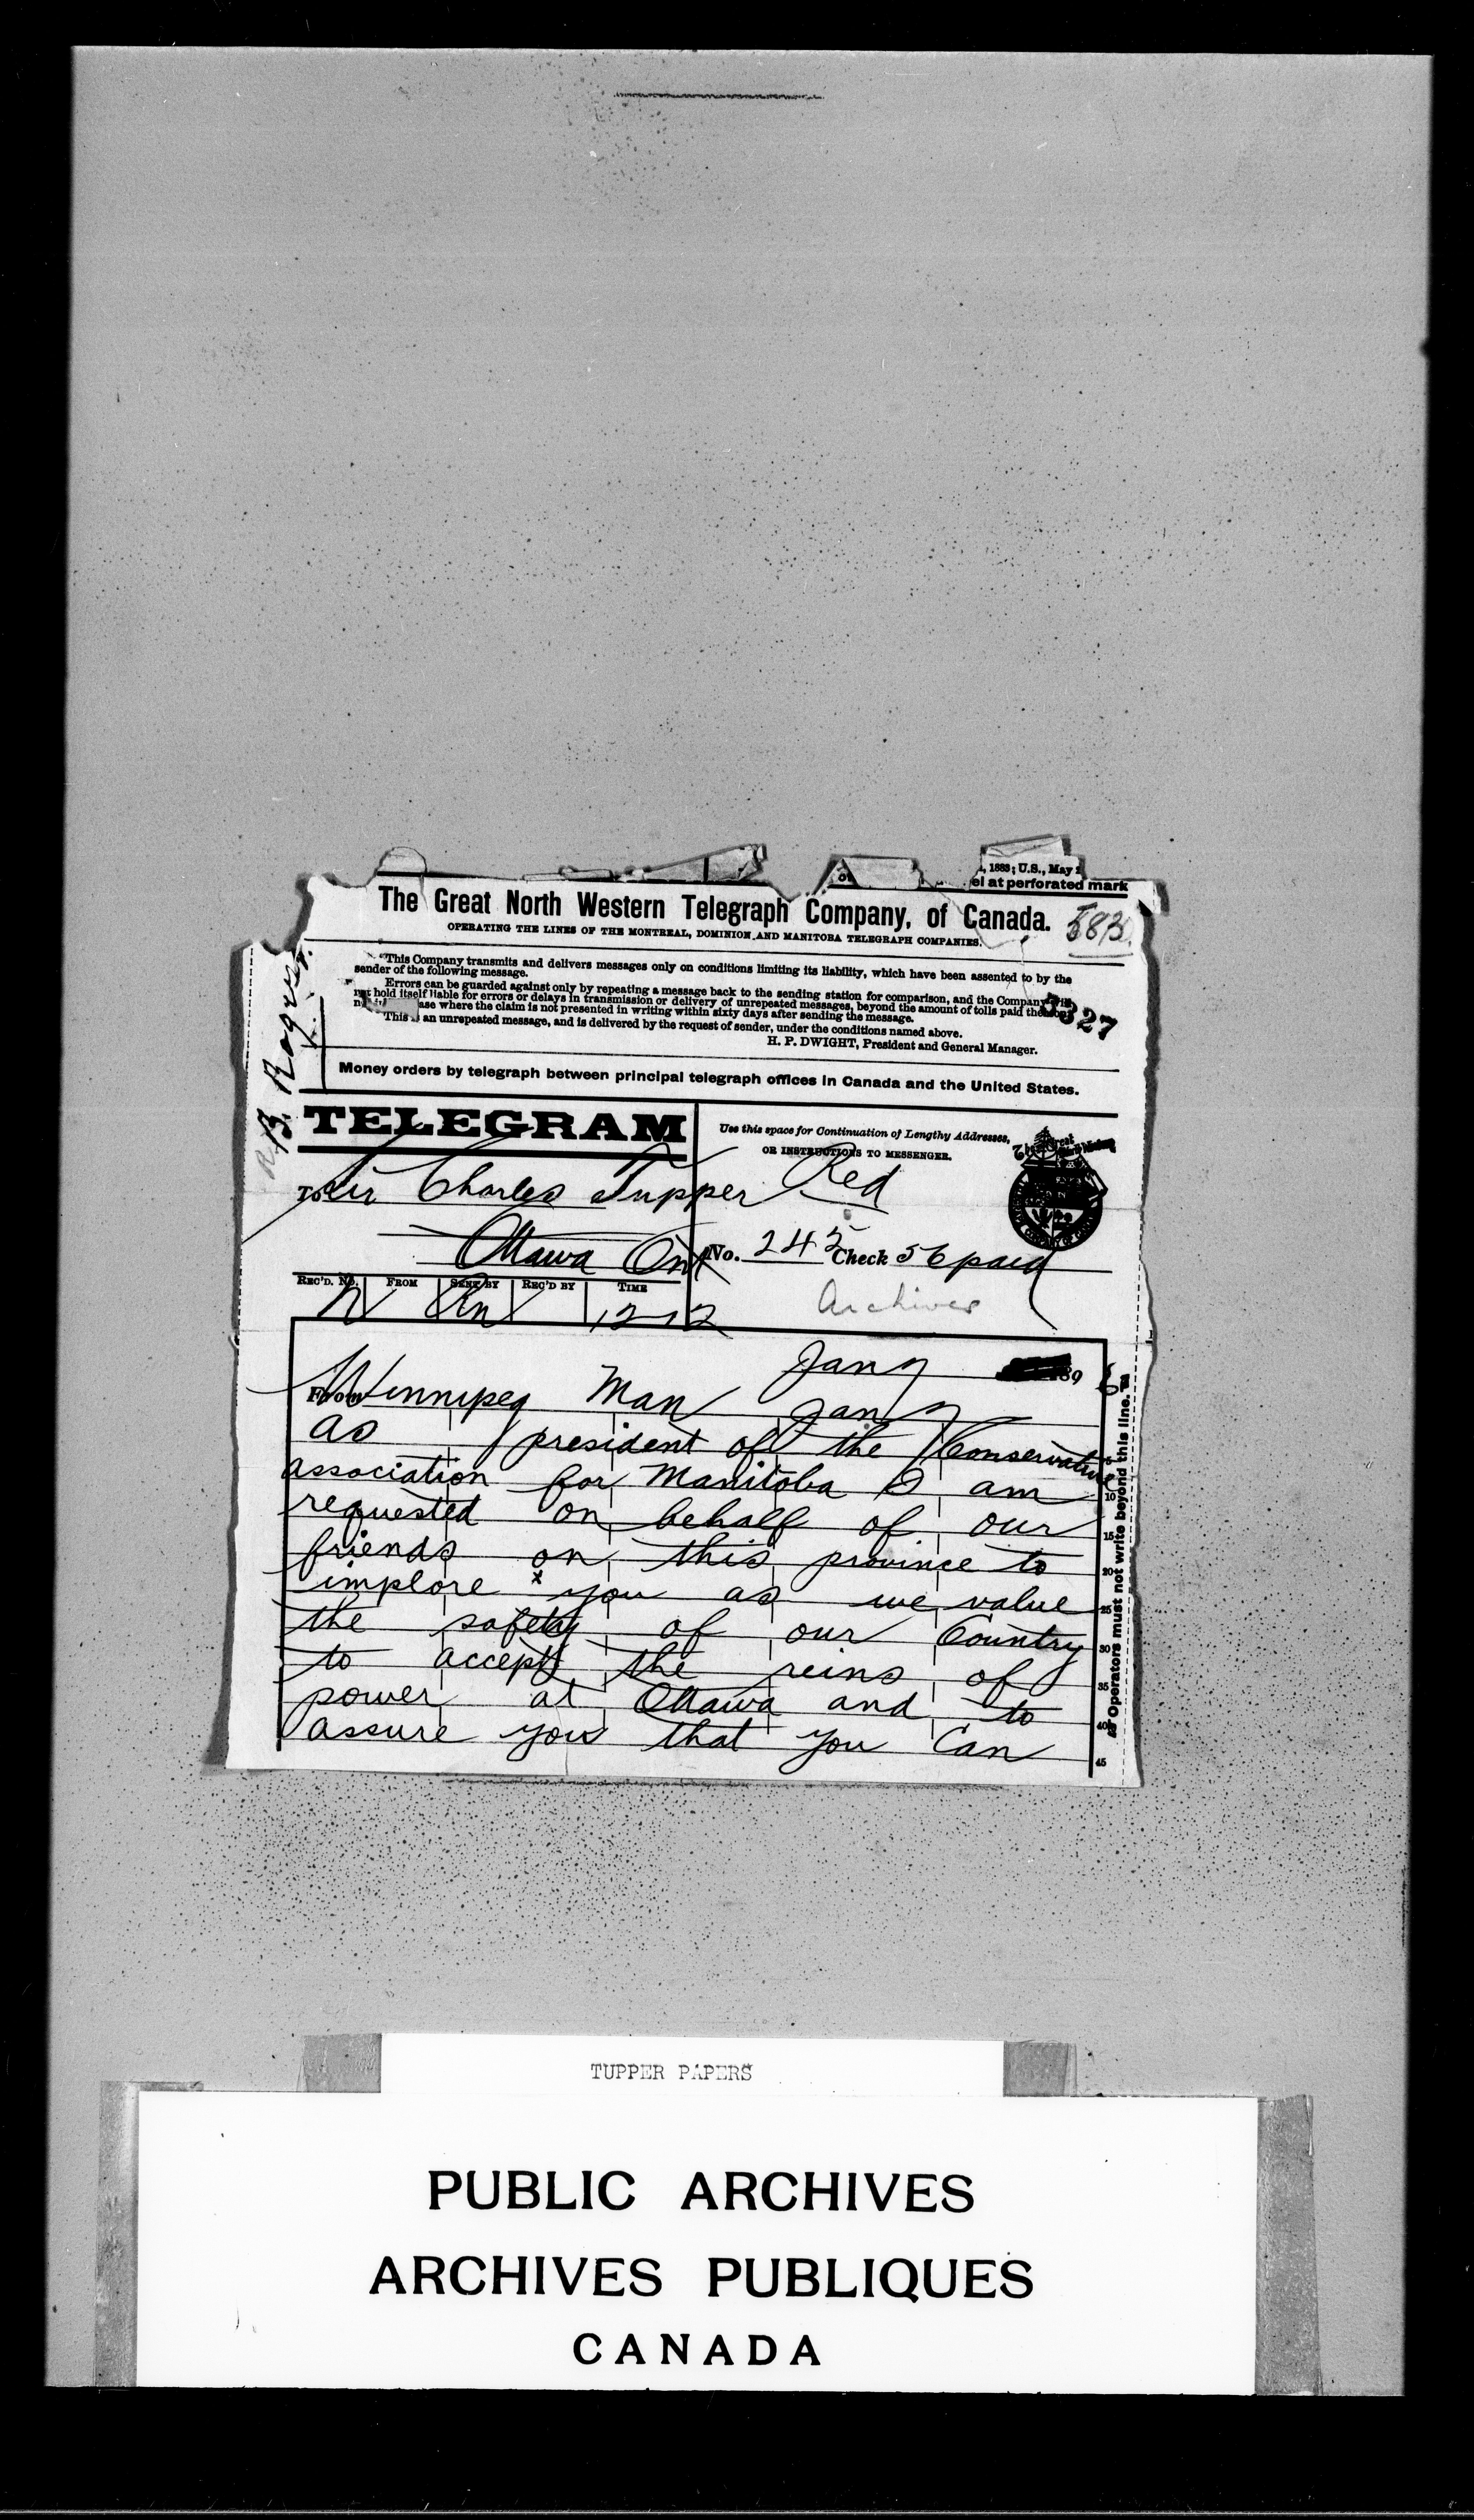 , 1883; U.S., May 1
el at perforated mark
The Great North Western Telegraph Company, of Canada.
OPERATING THE LINES OF THE MONTREAL, DOMINION AND MANITOBA TELEGRAPH COMPANIES.
This Company transmits and delivers messages only on conditions limiting its liability, which have been assented to by the
sender of the following message.
Errors can be guarded against only by repeating a message back to the sending station for comparison, and the Company
not hold itself liable for errors or delays in transmission or delivery of unrepeated messages, beyond the amount of tolls paid
ase where the claim is not presented in writing within sixty days after sending the message.
This is an unrepeated message, and is delivered by the request of sender, under the conditions named above.
H. P. DWIGHT, President and General Manager.
327
Money orders by telegraph between principal telegraph offices in Canada and the United States.
TELEGRAM
Use this space for Continuation of Lengthy Addresses,
OR INSTRUCTIONS TO MESSENGER.
To Sir Charles Tupper Red
Ottawa Ont
No. 245 Check 56 paid
REC'D. NO. FROM SENT BY REC'D BY TIME
Archives
Jany 189 6
From Winnipeg Man Jan 7
as president of the Conservative
association for Manitoba I am
requested on behalf of our
friends on this province to
implore x you as we value
the safety of our Country
to accept the reins of
power at Ottawa and to
assure you that you Can
5
10
15
20
25
30
35
40
45
Operators must not write beyond this line.
R. B. Rogers
TUPPER PAPERS
PUBLIC ARCHIVES
ARCHIVES PUBLIQUES
CANADA